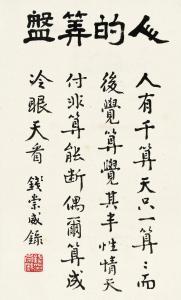 人的算盤
人有千算天只一算〻而
後覺算覺其半性情天
付非算能断偶爾算成
冷眼天看 錢崇威錄